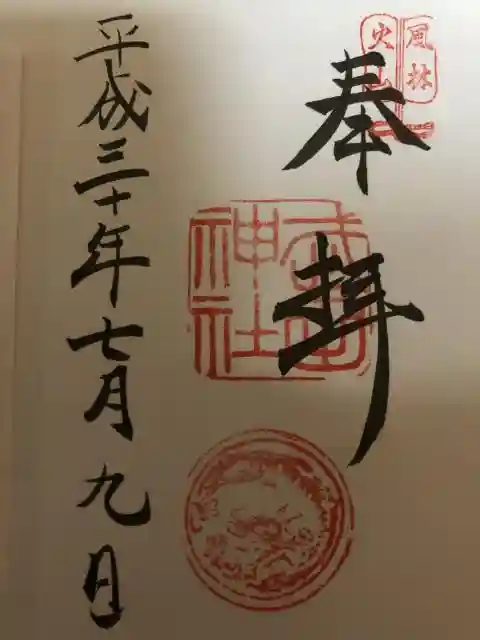 風林
火山
奉拝
武田
神社
平成三十年七月九日